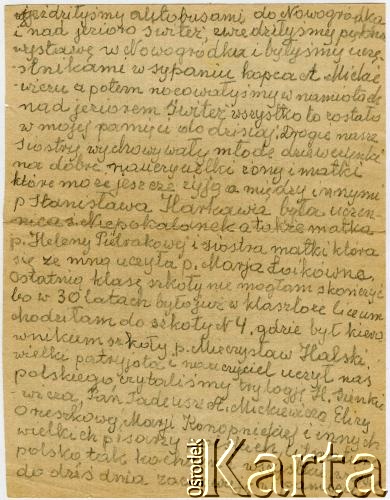 jeździłyśmy autobusami do Nowogródka
i nad jezioro Switeź, zwiedziłyśmy piękną
wystawę w Nowogródku i byłyśmy ucze-
stnikami w sypaniu kopca A. Mickie
wicza a potem nocowałyśmy w namiotach
nad jeziorem Switeź wszystko to zostało
w mojej pamięci do dzisiaj. Drogie nasze
siostry wychowywały młode dziewczynki
na dobre nauczycielki żony i matki
które może jeszcze żyją a między innymi
p Stanisława Harkawa była uczen-
nica s. Niepokalanek a także matka
p. Heleny i siostra matki która
się ze mną uczyła p. Marja
Ostatnią klasę szkoły nie mogłam skończyć
bo w 30 latach było już w klasztorze liceum
chodziłam do szkoły N 4, gdzie był kiero
wnikiem szkoły p. Mieczysław Halski
wielki patryjota i nauczyciel uczył nas
polskiego czytaliśmy trylogję H. Sienki
wicza, Pan Tadeusz A. Mickiewicza Elizy
Orzeszkowej Marji Konopnickiej i innych
wielkich pisarzy
polsko tak
do dziś dnia
Ośrodek
Karta